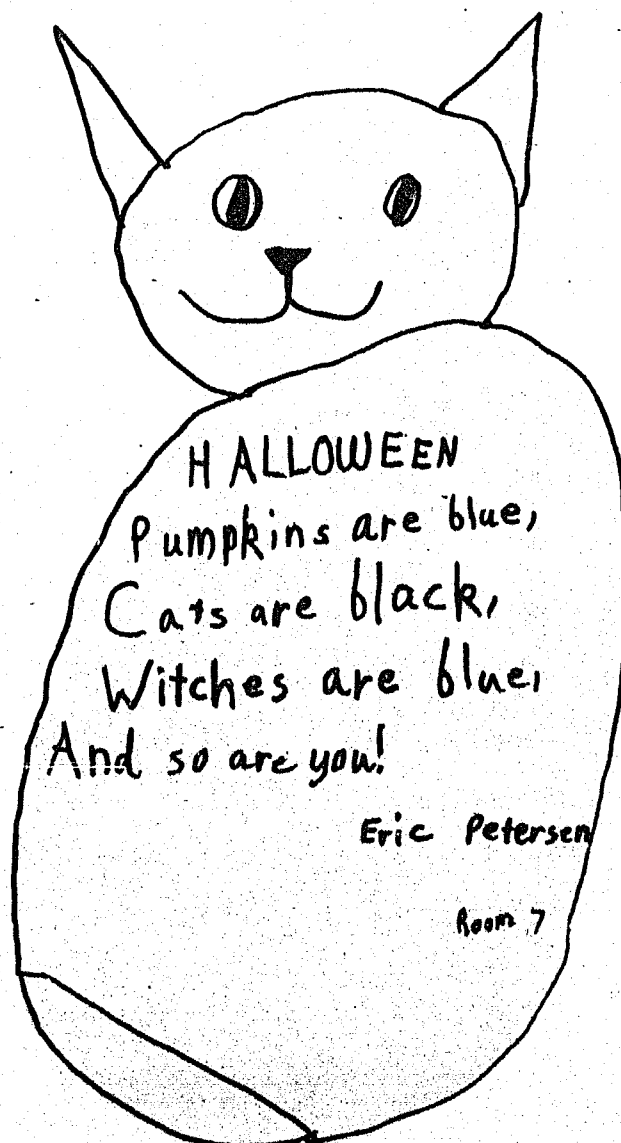 HALLOWEEN
Pumpkins are blue,
Cats are black,
Witches are blue,
And so are you!
Eric Petersen
Room 7